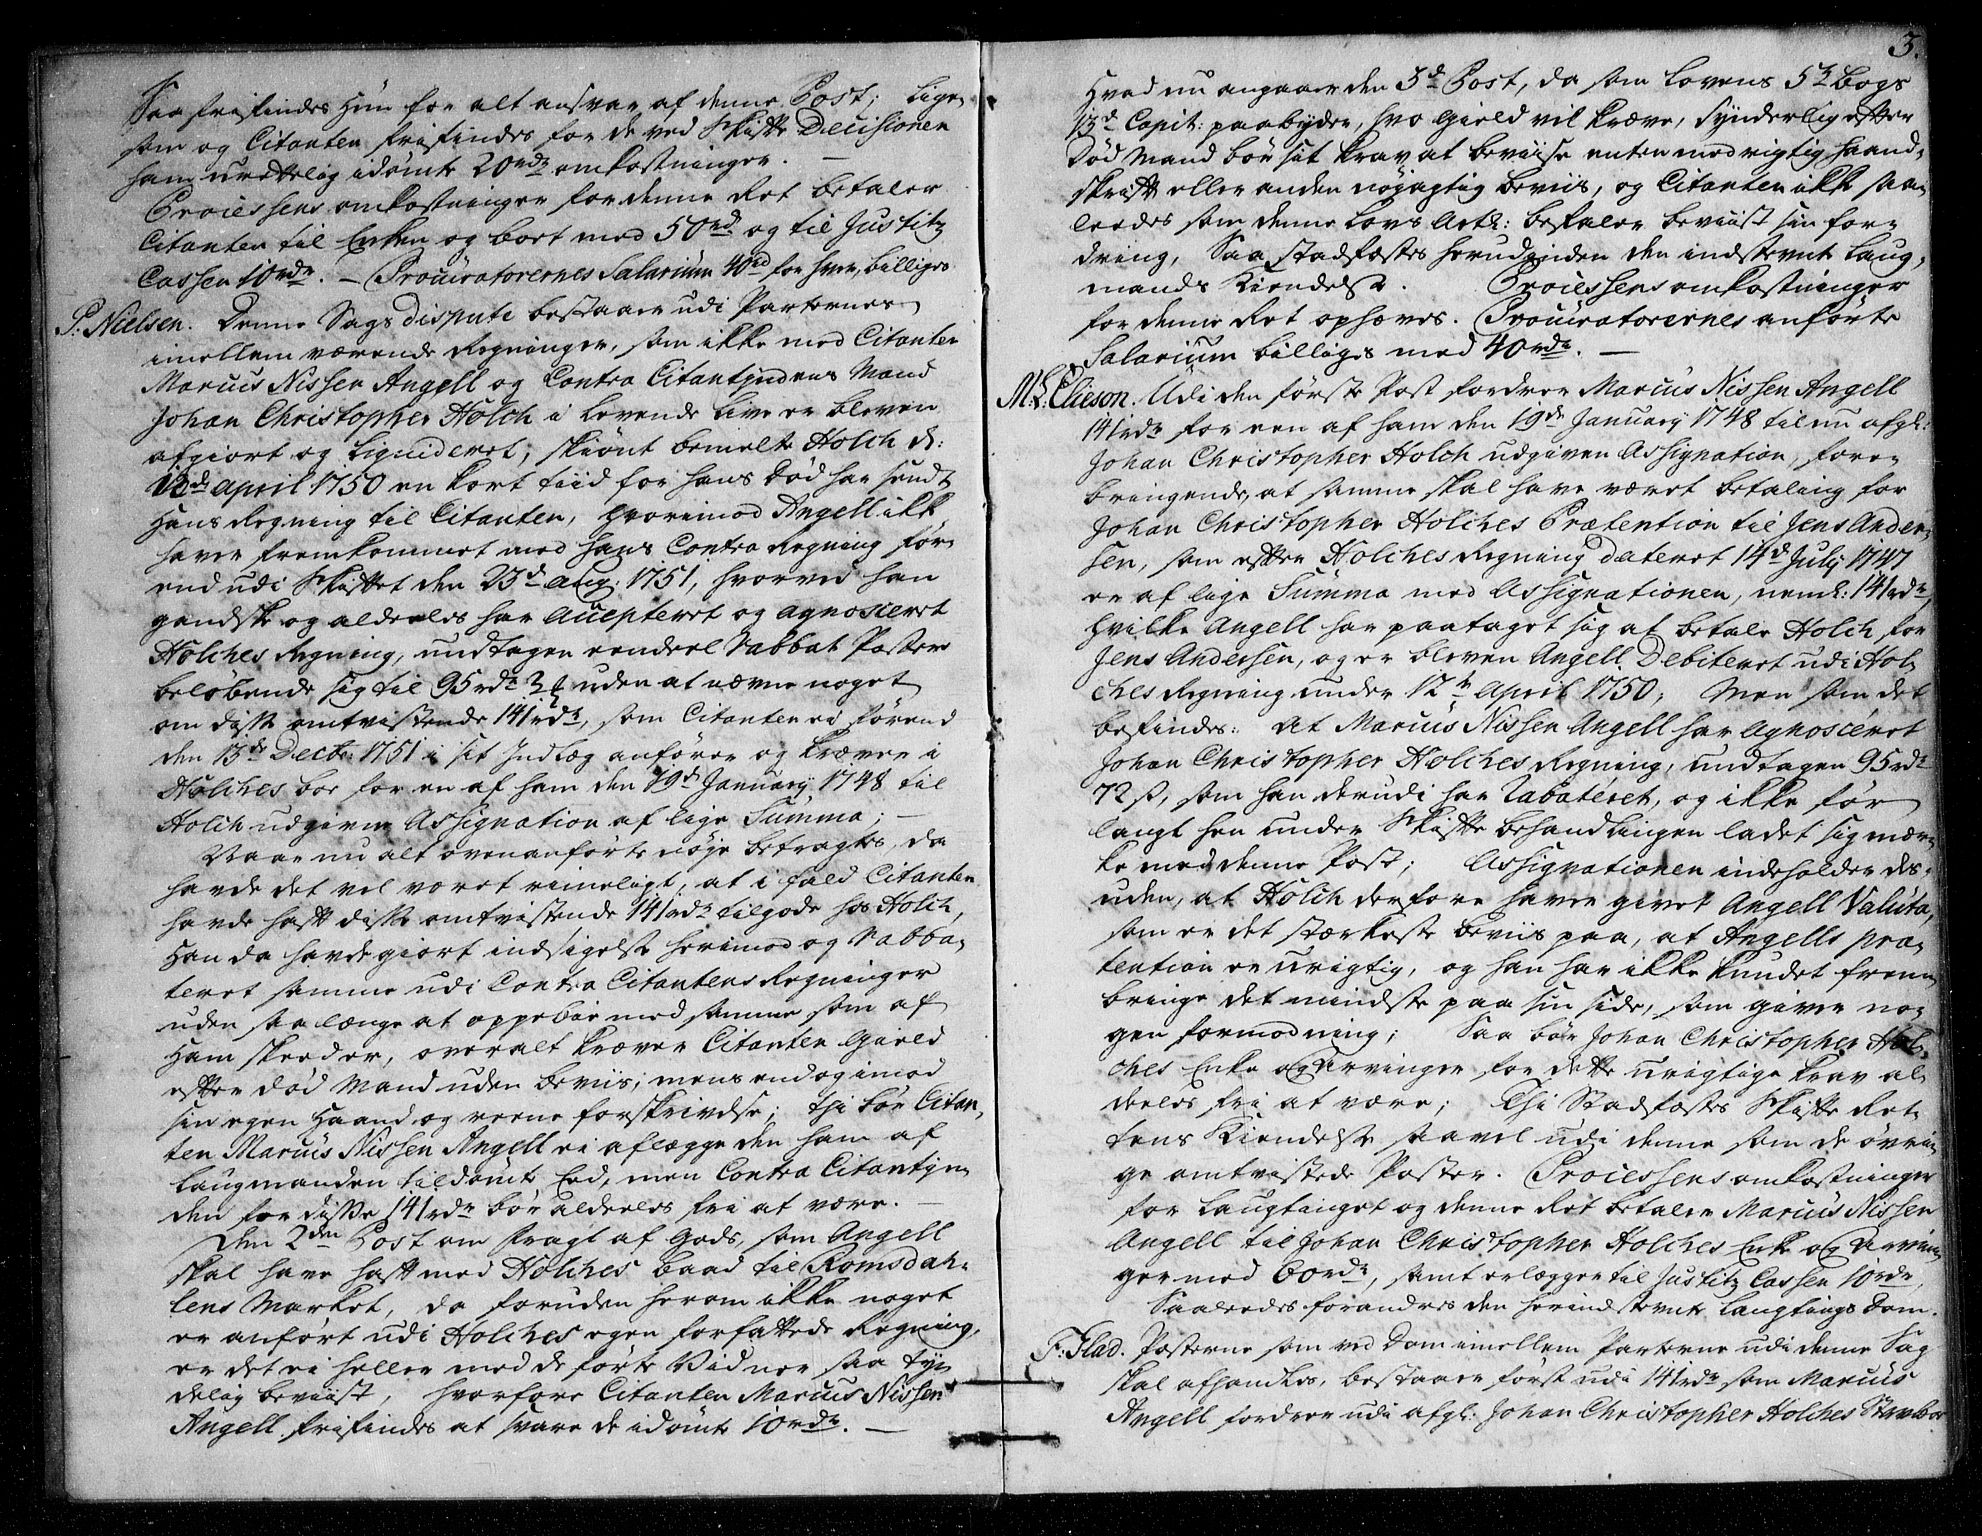 Saa frifindes Hun for alt ansvar af denne Post; lige-
som og Citanten frifindes for de ved Skifte Decisionen
ham urettelig idömte 20 rdr omkostninger. —
Processens omkostninger for denne Ret betaler
Citanten til Enken og bort med 50 rdr og til Justitz
Cassen 10 rdr. — Procuratorernes Salarium 40 rd for hver, billiges
P: Nielsen. Denne Sags dispute bestaaer udi Parternes
imellem værende Regninger, som ikke med Citanten
Marcus Nissen Angell og Contra Citantindens Mand
Johan Christopher Holch i levende Live er bleven
afgiort og liquideret, skiönt bemelte Holch d:
12de april 1750 en kort tiid for hans Död har sendt
Hans Regning til Citanten, hvorimod Angell ikke
haver fremkommet med hans Contra Regning för-
end udi Skiftet den 23d aug: 1751, hvorved han
gandske og aldeeles har accepteret og agnosceret
Holches Regning, undtagen eendeel Rabbat Poster
belöbende sig til 95 rdr 3 ₰ uden at nævne noget
om disse omtvistende 141 rdr, som Citanten ei förend
den 13de Decbr 1751 i sit Indlæg anförer og kræver i
Holches boe for en af ham den 19d January 1748 til
Holch udgiven Assignation af lige Summa; —
Naar nu alt ovenanförte nöje betragtes, da
havde det vel været rimeligt, at i fald Citanten
havde haft disse omtvistende 141 rdr tilgode hos Holch,
Han da havde giort indsigelse herimod og Rabba-
teret samme udi Contra Citantens Regninger
uden saa længe at oppebie med samme som af
Ham skeeder, overalt kræver Citanten Gield
efter död Mand uden beviis; mens endog imod
sin egen Haand og reene forskrivelse; thi bör Citan-
ten Marcus Nissen Angell ei aflægge den ham af
Laugmanden tildömte Eed, men Contra Citantin-
den for disse 141 rdr bör alderles fri at være. —
Den 2den Post om fragt af Gods, som Angell
skal have haft med Holches baad til Romsdah-
lens Market, da foruden herom ikke noget
er anfört udi Holches egen forfattede Regning,
er det ei heller med de förte Vidner saa tyy-
delig beviist, hvorfore Citanten Marcus Nissen
Angell frifindes at svare de idömte 10 rdr. —
3.
Hvad nu angaaer den 3d Post, da som Lovens 5te Bogs
13d Capit: paabyder, hvo Gield vil kræve, synderlig efter
Död Mand bör sit krav at beviise enten med rigtig haand-
skrift eller anden nöjagtig beviis, og Citanten ikke saa-
leedes som denne Lovs Artl: befaler beviist sin for-
dring, Saa stadfæstes herudinden den indstevnte Laug-
mands Kiendelse. Processens omkostninger
for denne Ret ophæves. Procuratorernes anförte
Salarium billiges med 40 rdr. —
M: L: Elieson. Udi den förste Post fordrer Marcus Nissen Angell
141 rdr for een af ham den 19de January 1748 til nu afgl:
Johan Christopher Holch udgiven Assignation, fore-
bringende, at samme skal have været betaling for
Johan Christopher Holches Prætention til Jens Ander-
sen, som efter Holches Regning dateret 14d July 1747
er af lige Summa med Assignationen, neml: 141 rdr,
hvilke Angell har paataget sig at betale Holch for
Jens Andersen, og er bleven Angell Debiteret udi Hol-
ches Regning under 12te April 1750; Men som det
befindes: At Marcus Nissen Angell har Agnosceret
Johan Christopher Holches Regning, undtagen 95 rdr
72 s, som han derudi har Rabateret, og ikke för
langt hen under Skifte behandlingen ladet sig mær-
ke med denne Post; Assignationen indeholder des-
uden, at Holch derfore haver givet Angell Valuta,
som er det stærkeste beviis paa, at Angells præ-
tention er urigtig, og han har ikke kundet frem-
bringe det mindste paa sin side, som giver no-
gen formodning; Saa bör Johan Christopher Hol-
ches Enke og Arvinger for dette urigtige krav al-
deeles fri at være; Thi Stadfæstes Skifte Ret-
tens Kiendelse saavel udi denne som de övri-
ge omtvistede Poster. Processens omkostninger
for Laugtinget og denne Ret betaler Marcus Nissen
Angell til Johan Christopher Holches Enke og Arvin-
ger med 60 rdr, samt erlægger til Justitz Cassen 10 rdr,
Saaleedes forandres den herindstevnte Laugtings Dom.
F: Flad. Posterne som ved Dom imellem Parterne udi denne Sag
skal afhandles, bestaaer först udi 141 rdr som Marcus
Angell fordrer udi afgl: Johan Christopher Holches Stervboe